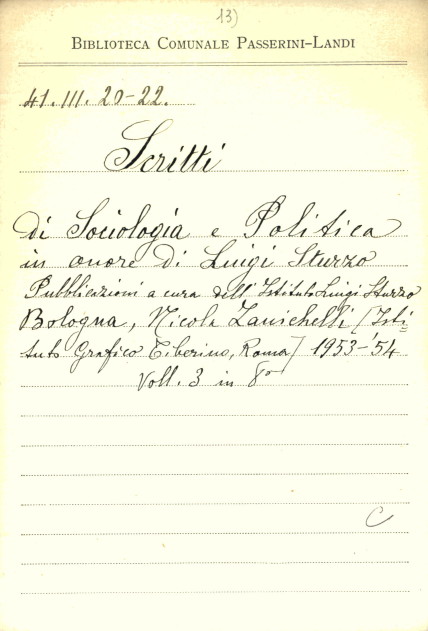 13)
BIBLIOTECA COMUNALE PASSERINI-LANDI
41. III. 20-22.
Scritti
di Sociologia e Politica
in onore di Luigi Sturzo
Pubblicazioni a cura dell'Istituto Luigi Sturzo
Bologna, Nicola Zanichelli [Isti=
tuto Grafico Tiberino, Roma] 1953-'54
Voll. 3 in 8º
C